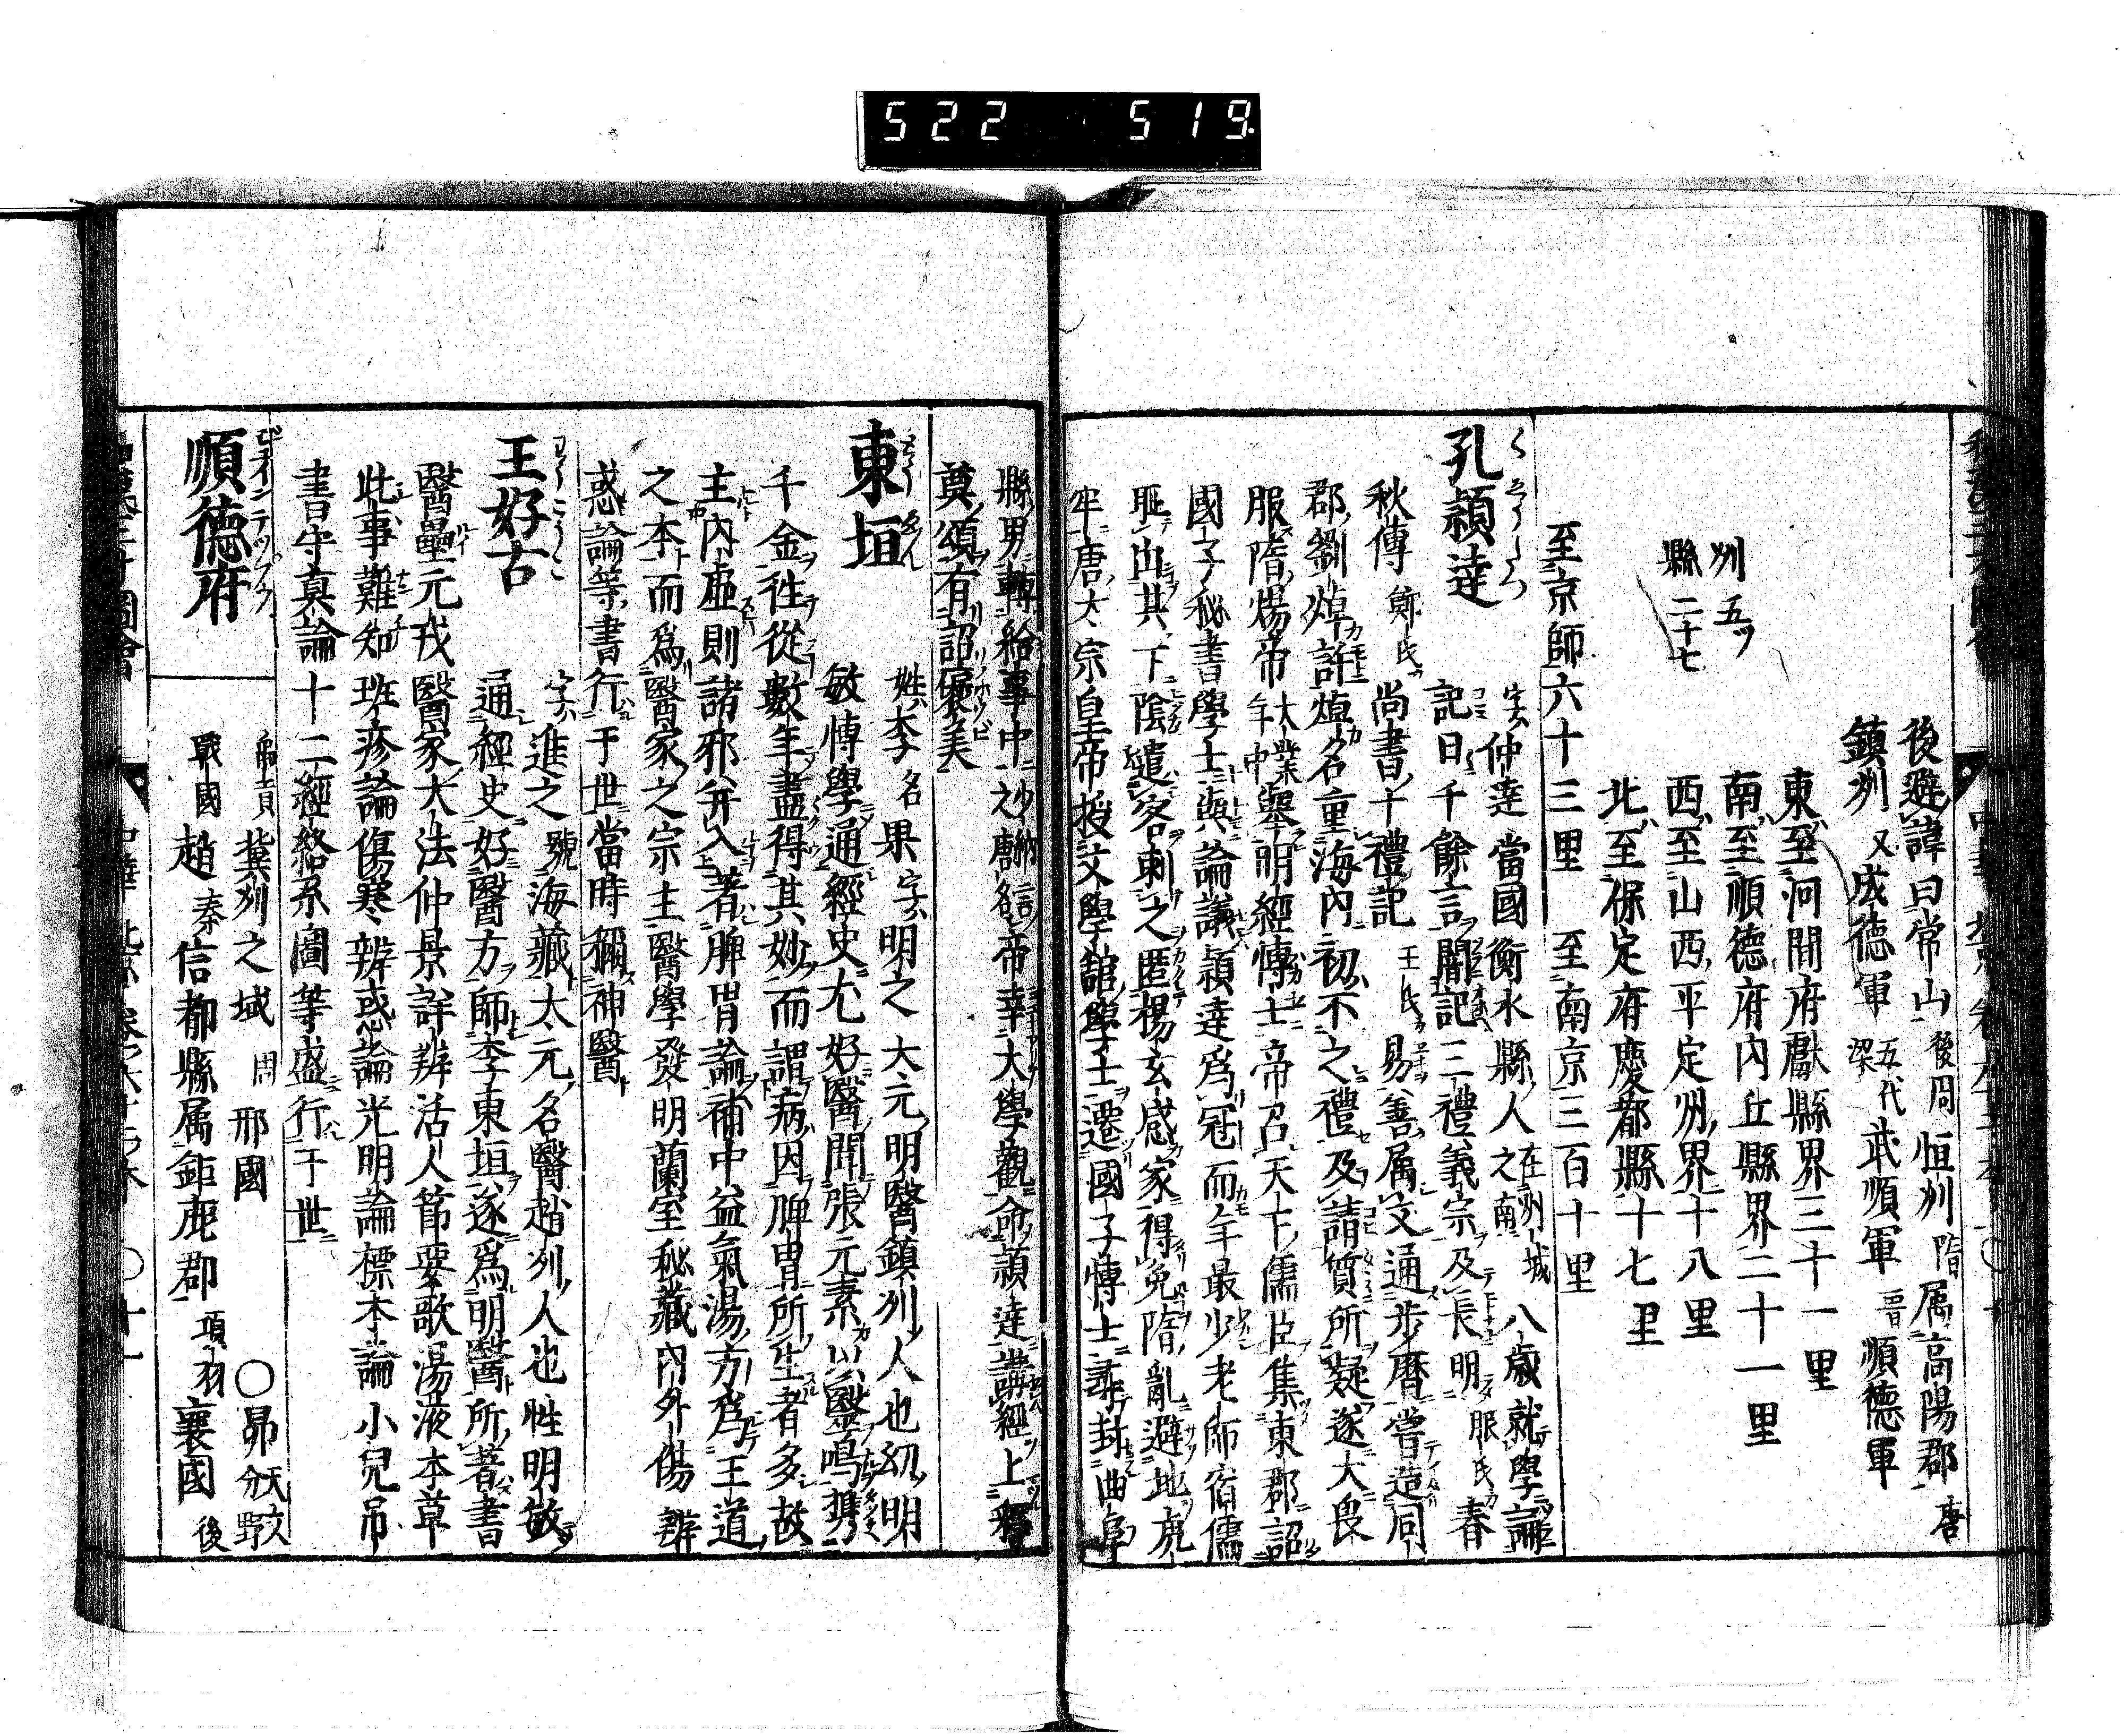 522 519.
後避諱曰常山 後周 恒州 隋 属高陽郡 唐
鎮州 又成德軍 五代梁 武順軍 晋 順德軍
東至河間府獻縣界三十一里
南至順德府內丘縣界二十一里
州五ツ 西至山西平定州界十八里
縣二十七 北至保定府慶都縣十七里
至京師六十三里 至南京三百十里
孔頴達 字仲達當國衡水縣人 在州城之南 八歳就學論
記日千餘言闇記三禮義宗及長明 服氏 春
秋傳 鄭氏 尚書十禮記 王氏 易善属文通步曆嘗造同
郡劉焯許焯名重海內初不之禮及請質所疑遂大畏
服隋煬帝 大業年中 舉明經博士帝召天下儒臣集東郡詔
國子秘書學士與論議頴達為冠而年最少老師宿儒
耻出其下陰遣客刺之匿楊玄感家得免隋亂避地虎
牢唐太宗皇帝授文學館學士遷國子博士尋封曲阜
縣男轉給事中 帝幸大學觀命頴達講經上釋
奠頌有詔褒美
東垣 姓李名果字明之大元明醫鎮州人也幼明
敏博學通經史尤好醫聞張元素以醫鳴携
千金徃從數年盡得其妙而謂病因脾胃所生者多故
主內虛則諸邪并入著脾胃論補中益氣湯方為王道
之本而為醫家之宗主醫學發明蘭室秘藏內外傷辨
惑論等書行于世當時稱神醫
王好古 字進之號海藏大元名醫趙州人也性明敏
通經史好醫方師李東垣遂為明醫所著書
醫壘元戎醫家大法仲景詳辨活人節要歌湯液本草
此事難知班疹論傷寒辨惑論光明論標本論小兒吊
書守真論十二經絡系圖等盛行于世
順德府 禹貢 冀州之域 周 邢國 〇昴 天文分野
戰國 趙 秦 信都縣属鉅鹿郡 項羽 襄國 後